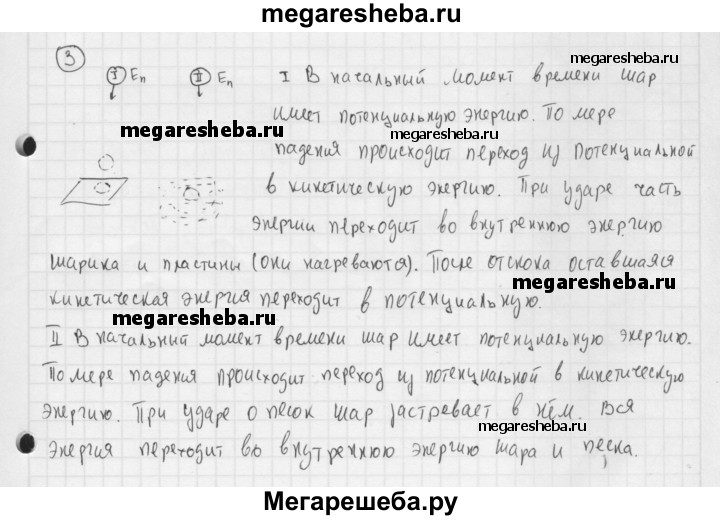 megaresheba.ru
3
I Eп II Eп I В начальный момент времени шар
megaresheba.ru
имеет потенциальную энергию. По мере
megaresheba.ru
megaresheba.ru
падения происходит переход из потенциальной
в кинетическую энергию. При ударе часть
энергии переходит во внутреннюю энергию
шарика и пластины (они нагреваются). После отскока оставшаяся
megaresheba.ru
кинетическая энергия переходит в потенциальную.
megaresheba.ru
II В начальный момент времени шар имеет потенциальную энергию.
По мере падения происходит переход из потенциальной в кинетическую
энергию. При ударе о песок шар застревает в нём. Вся
megaresheba.ru
энергия переходит во внутреннюю энергию шара и песка.
Мегарешеба.ру